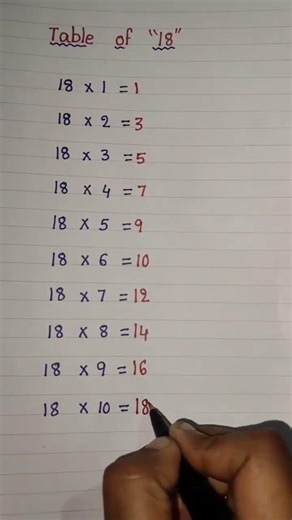 Table of "18"
18 x 1 = 1
18 x 2 = 3
18 x 3 = 5
18 x 4 = 7
18 x 5 = 9
18 x 6 = 10
18 x 7 = 12
18 x 8 = 14
18 x 9 = 16
18 x 10 = 18